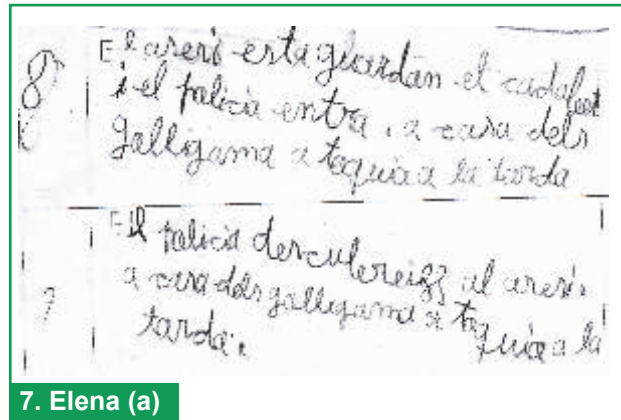 8
El areri esta guardan el cadafeet
i el palicia entra, a casa dels
galligama a toquiaa la tarda
7
El palicia desculereigz al areri.
a casa dels galligama a toquiaa la
tarda.
7. Elena (a)